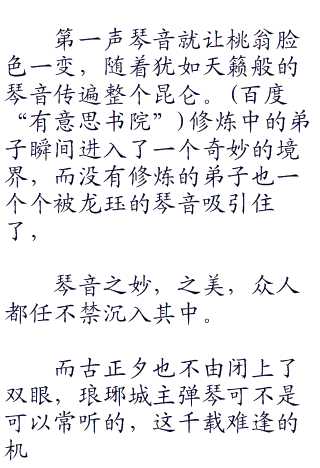 第一声琴音就让桃翁脸
色一变，随着犹如天籁般的
琴音传遍整个昆仑。(百度
“有意思书院”)修炼中的弟
子瞬间进入了一个奇妙的境
界，而没有修炼的弟子也一
个个被龙珏的琴音吸引住
了，
琴音之妙，之美，众人
都任不禁沉入其中。
而古正夕也不由闭上了
双眼，琅琊城主弹琴可不是
可以常听的，这千载难逢的
机